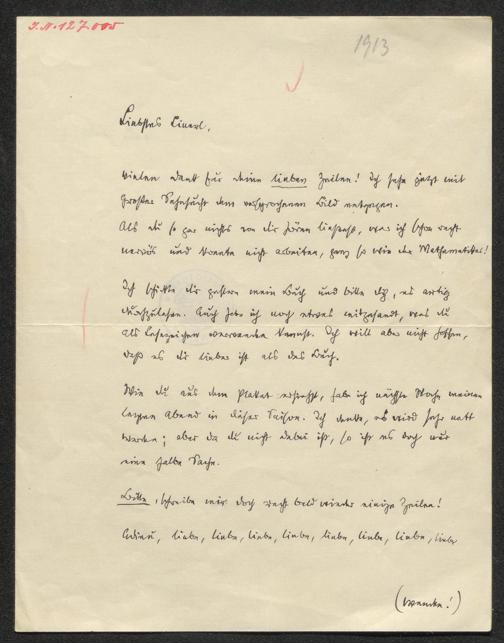 J.N. 127.005
1913
Liebstes Linerl,
vielen Dank für deine lieben Zeilen! Ich sehe jetzt mit
großer Sehnsucht dem versprochenen Bild entgegen.
Als du so gar nichts von dir hören ließest, war ich schon recht
nervös und konnte nicht arbeiten, ganz so wie der Mathematiker!
Ich schickte dir gestern mein Buch und bitte dich, es artig
durchzulesen. Auch habe ich noch etwas mitgesandt, was du
als Lesezeichen verwenden kannst. Ich will aber nicht hoffen,
daß es dir lieber ist als das Buch.
Wie du aus dem Plakat ersiehst, habe ich nächste Woche meinen
letzten Abend in dieser Saison. Ich denke, es wird sehr nett
werden; aber da du nicht dabei bist, so ist es doch nur
eine halbe Sache.
Bitte, schreibe mir doch recht bald wieder einige Zeilen!
Adieu, liebe, liebe, liebe, liebe, liebe, liebe, liebe, liebe
(wende!)